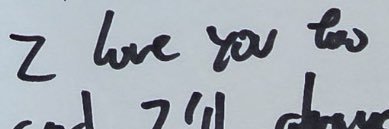 I love you too
and I'll always